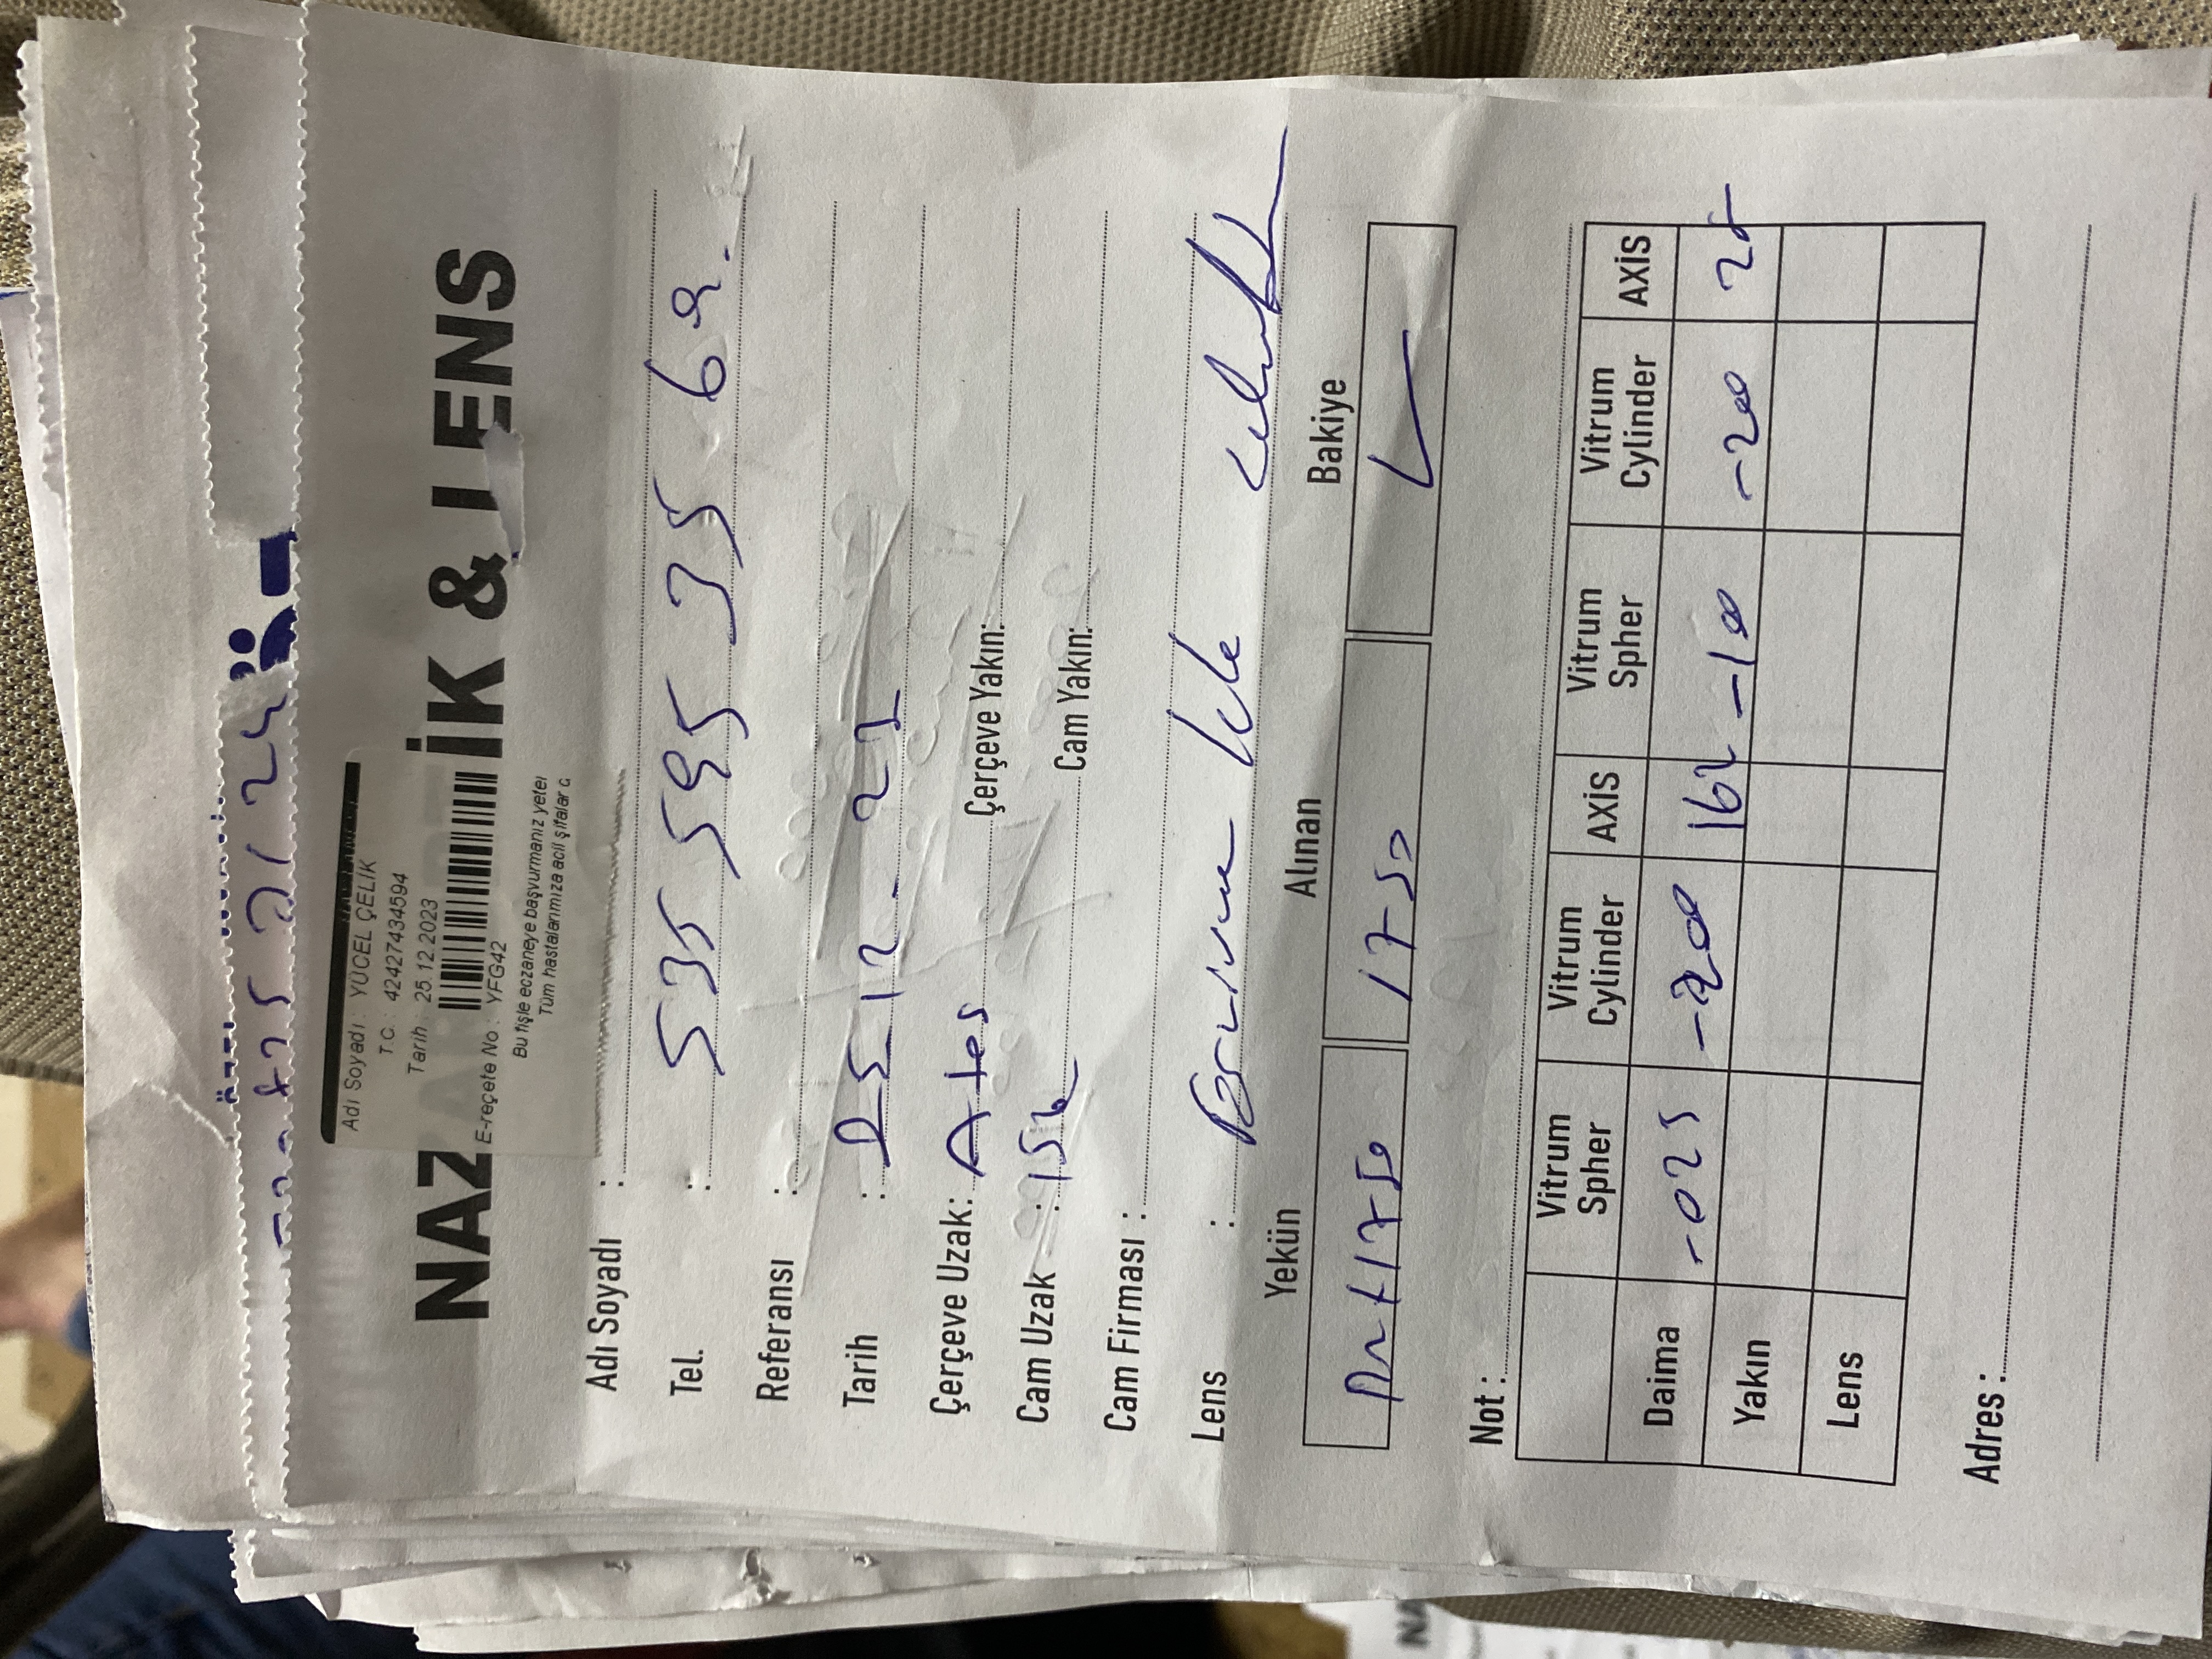 Adı Soyadı : YÜCEL ÇELİK
T.C. : 42427434594
Tarih : 25.12.2023
NAZ İK & LENS
E-reçete No : YFG42
Bu fişle eczaneye başvurmanız yeter
Tüm hastalarımıza acil şifalar d
Adı Soyadı :
Tel. : 535 595 35 69.
Referansı :
Tarih : 25 12 - 23
Çerçeve Uzak: Ates Çerçeve Yakın:
Cam Uzak : 156 Cam Yakın:
Cam Firması :
Lens :
Yekün Alınan Bakiye
+1750 1750
Not :
Vitrum Spher Vitrum Cylinder AXİS Vitrum Spher Vitrum Cylinder AXİS
Daima -025 -200 162 -100 -200
Yakın
Lens
Adres :